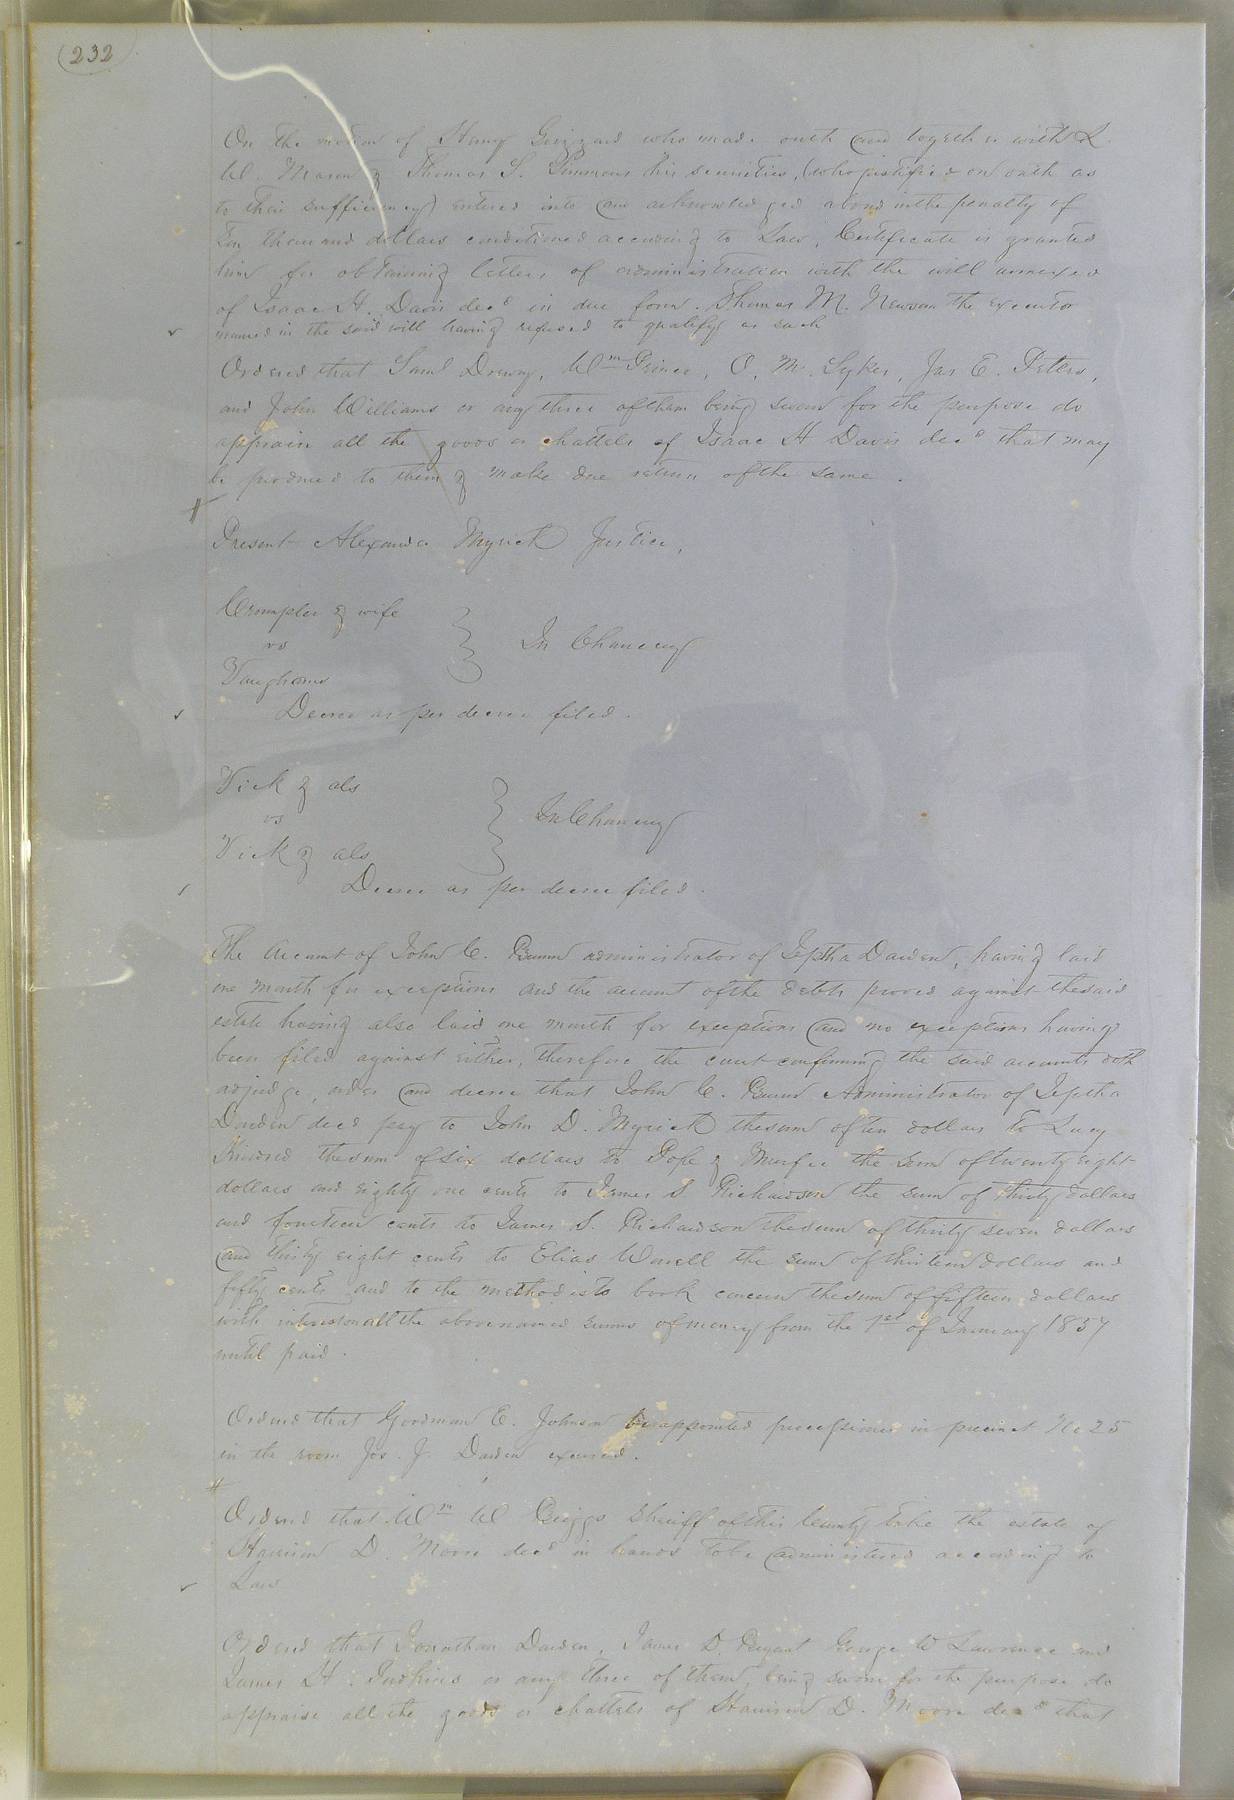 (232)
On the motion of Henry Grizzard who made oath and together with L
W. Mason & Thomas S. Simmons his securities, (who justified on oath as
to their sufficiency) entered into and acknowledged a bond in the penalty of
Ten thousand dollars conditioned according to Law, Certificate is granted
him for obtaining letters of administration with the will annexed
of Isaac H. Davis decd in due form. Thomas M. Newsom the Executor
named in the said will having refused to qualify as such
Ordered that Saml Drewry, Wm Prince, O. M. Sykes, Jas E. Peters,
and John Williams or any three of them being sworn for the purpose do
appraise all the goods or chattels of Isaac H Davis decd that may
be produced to them & make due return of the same.
Present Alexander Myrick Justice,
Crumpler & wife
vs
In Chancery
Vaughans
Decree as per decree filed.
Vick & als
vs
In Chancery
Vick & als
Decree as per decree filed.
The account of John C. administrator of Jeptha Darden, having laid
one month for exceptions and the account of the debts proved against the said
estate having also laid one month for exceptions and no exceptions having
been filed against either, therefore the court confirming the said accounts doth
adjudge, order and decree that John C. Administrator of Jeptha
Darden decd pay to John D. Myrick the sum of ten dollars to Lucy
Kindred the sum of six dollars to Pope & Murfee the sum of twenty eight
dollars and eighty one cents to James S Richardson the sum of thirty dollars
and fourteen cents to James S. Richardson the sum of thirty seven dollars
and thirty eight cents to Elias Worrell the sum of thirteen dollars and
fifty cents and to the methodists book concern the sum of fifteen dollars
with interest on all the above named sums of money from the 1st of January 1857
until paid.
Ordered that Goodman E. Johnson be appointed processioner in precinct No 25
in the room Jos. J. Darden excused.
Ordered that Wm W Briggs Sheriff of this County take the estate of
Harrison D. Moore decd in hands to be administered according to
Law
Ordered that Jonathan Darden, James D. Bryant George W Lawrence and
James H. Judkins or any three of them being sworn for the purpose do
appraise all the goods or chattels of Harrison D. Moore decd that